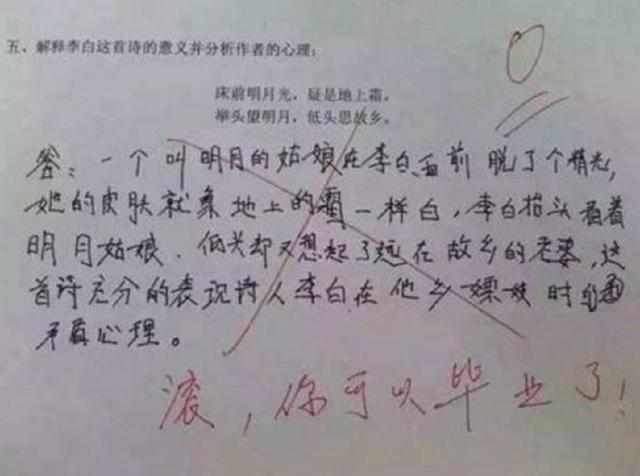 五、解释李白这首诗的意义并分析作者的心理:
0
床前明月光，疑是地上霜。
举头望明月，低头思故乡。
答：一个叫明月的姑娘在李白面前脱了个精光，
她的皮肤就象地上的霜一样白，李白抬头看着
明月姑娘、低头却又想起了远在故乡的老婆，这
首诗充分的表现诗人李白在他乡嫖妓时的
矛盾心理。
滚，你可以毕业了！